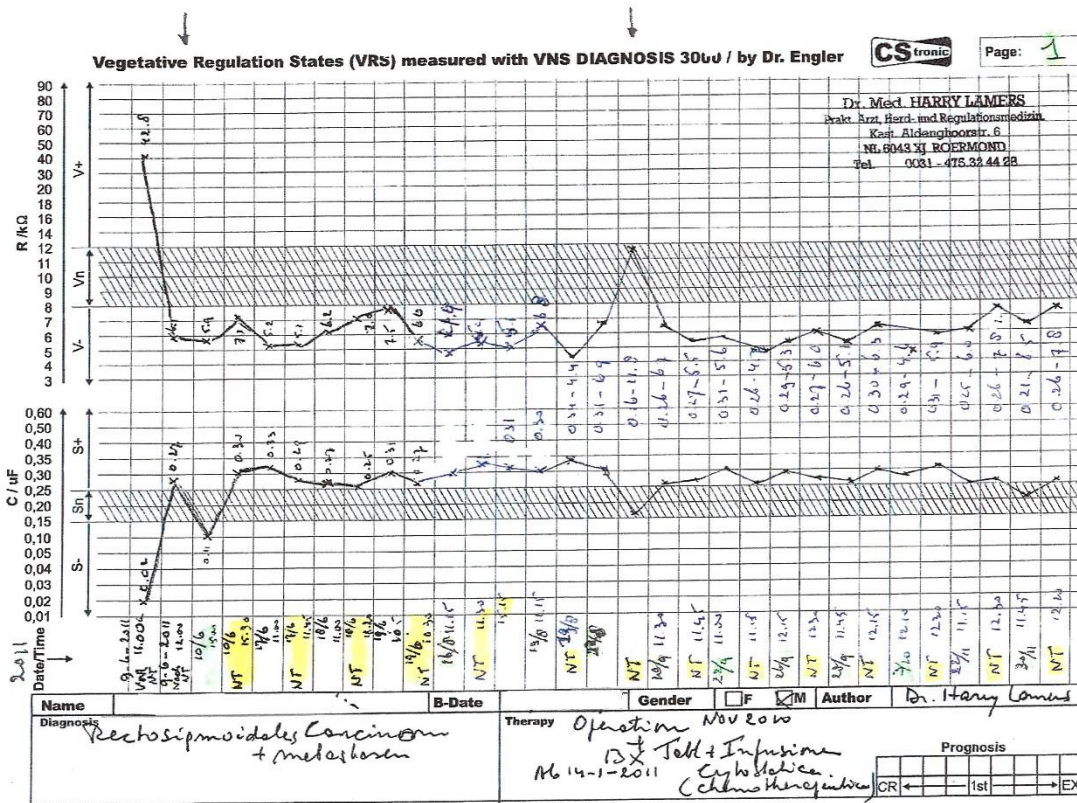 Vegetative Regulation States (VRS) measured with VNS DIAGNOSIS 3000 / by Dr. Engler
CStronic
Page: 1
Dr. Med. HARRY LAMERS
Prakt. Arzt, Herd- und Regulationsmedizin
Kast. Aldenghoorstr. 6
NL 6043 XJ ROERMOND
Tel. 0031 - 475.32 44 28
R /kΩ
V+
Vn
V-
90
80
70
60
50
40
30
20
18
16
14
12
11
10
9
8
7
6
5
4
3
42.8
5.9
7.1
5.2
5.1
6.2
7.0
7.5
0.34-4.4
0.31-6.9
0.16-11.9
0.26-6.7
0.27-5.5
0.31-5.6
0.26-4.7
0.29-5.3
0.27-6.0
0.26-5.1
0.30-6.3
0.29-4.6
0.31-5.9
0.25-6.0
0.26-7.8
0.21-6.5
0.26-7.8
C / uF
S+
Sn
S-
0,60
0,50
0,40
0,35
0,30
0,25
0,20
0,15
0,10
0,05
0,04
0,03
0,02
0,01
0.02
0.27
0.11
0.30
0.33
0.29
0.27
0.25
0.31
0.27
0.31
0.30
2011
Date/Time
9-6-2011
NT
9-6-2011
Nach 12.00
NT
10/6
15.00
10/6
15.30
NT
11.00
11.45
NT
11.00
NT
19/6
10.30
NT
11.15
11.30
NT
15.15
11.15
NT
NT
20/9 11.30
NT 11.45
22/9 11.00
NT 11.15
26/9 12.15
NT 12.30
11.45
NT 12.15
7/10 12.10
NT 12.30
22/11 11.15
NT 12.30
30/11 11.45
NT 12.20
Name
B-Date
Gender
F
M
Author
Dr. Harry Lamers
Diagnosis
Rectosigmoidales Carcinom
+ metastasen
Therapy
Operation Nov 2010
+
13x Tabl + Infusionen
Ab 14-1-2011 Cytostatica
(Chemotherapeutica)
Prognosis
CR
1st
EX